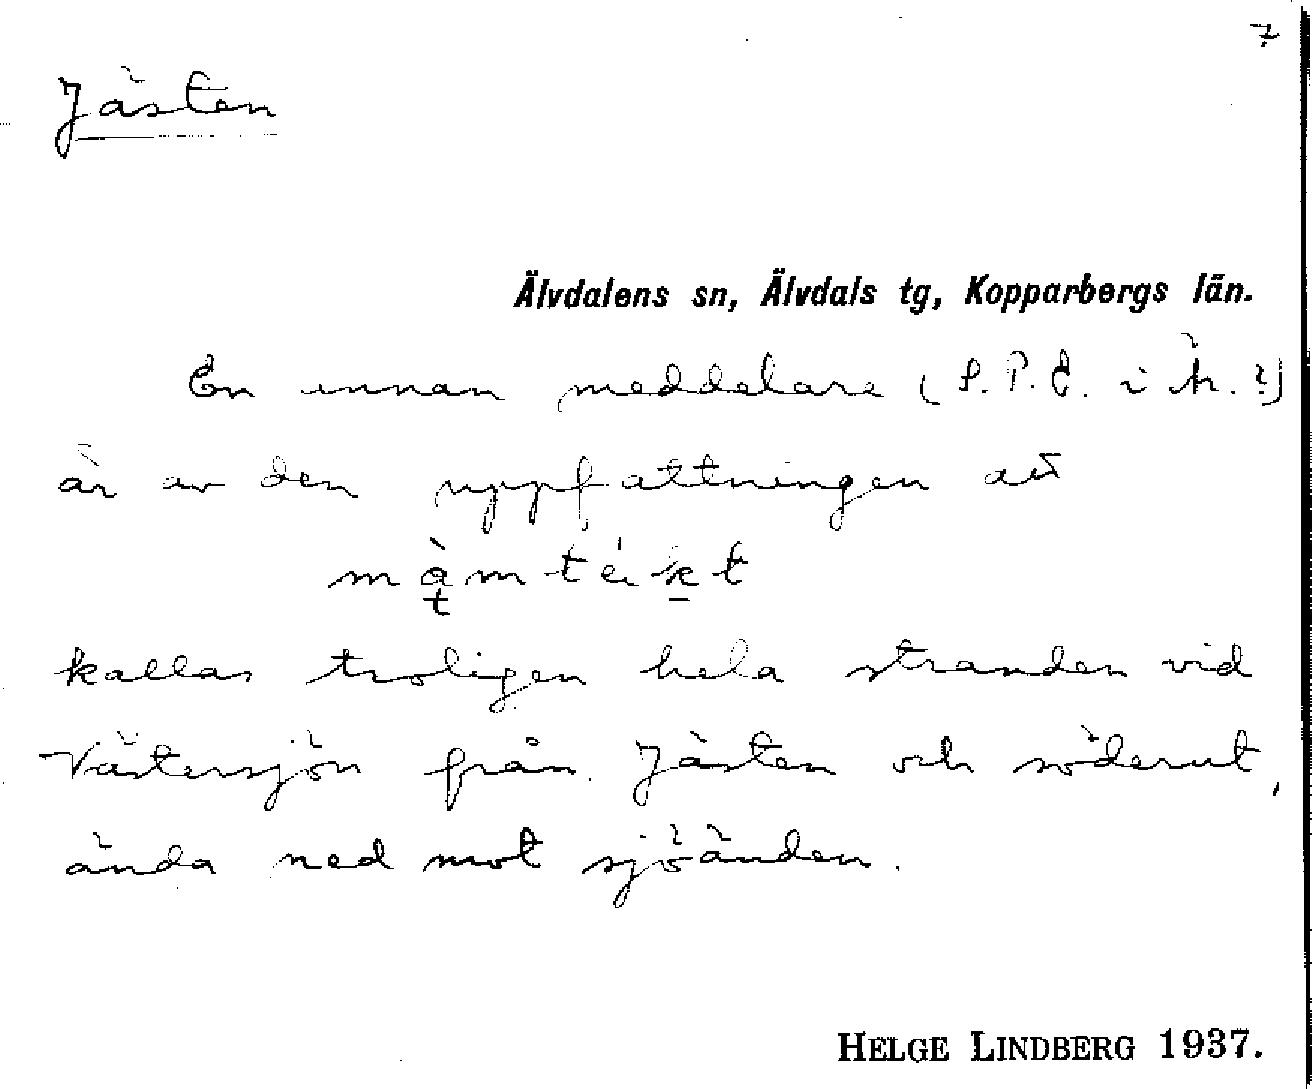 7
Jästen
Älvdalens sn, Älvdals tg, Kopparbergs län.
En annan meddelare (S.P.E. i Är.?)
är av den uppfattningen att
kallas troligen hela stranden vid
Västersjön från Jästen och söderut,
ända ned mot sjöänden.
HELGE LINDBERG 1937.